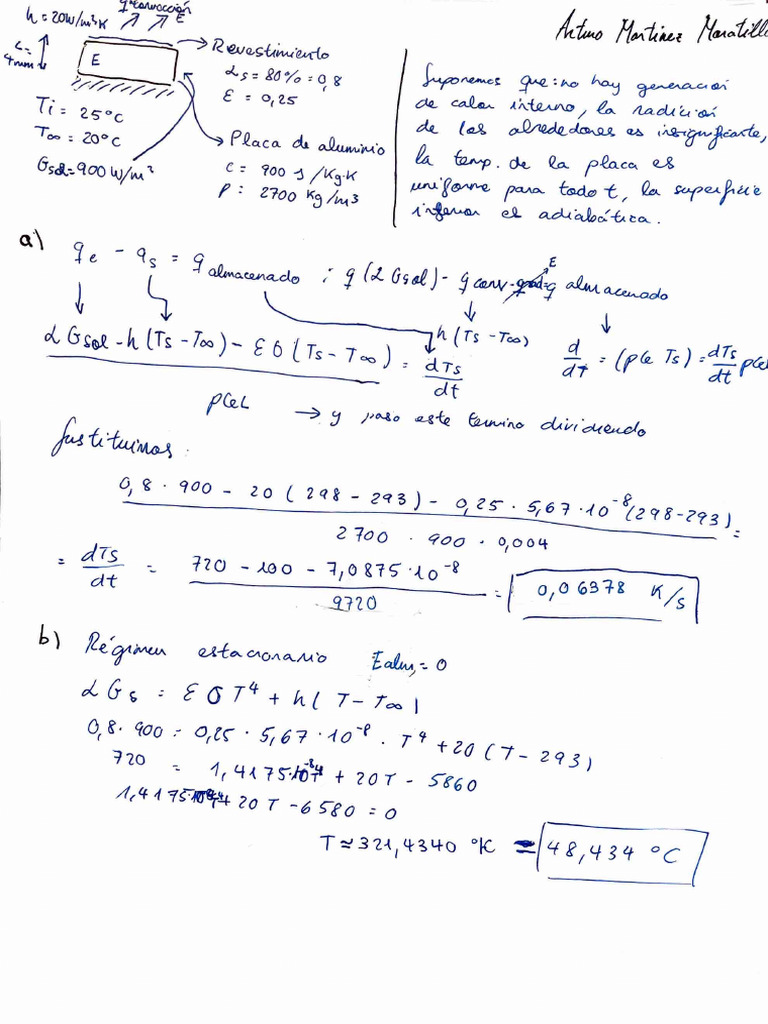 Arturo Martinez Moratilla
h = 20 W/m²K
q convección
E
L =
4mm
E
Revestimiento
αs = 80% = 0,8
ε = 0,25
Ti = 25°C
T∞ = 20°C
Gsol = 900 W/m²
Placa de aluminio
c = 900 J/Kg·K
ρ: 2700 Kg/m3
Suponemos que: no hay generacion
de calor interno, la radición
de los alrededores es insignificante,
la temp. de la placa es
uniforme para todo t, la superficie
inferior es adiabática.
a) qe - qs = q almacenado ; q (αGsol) - q conv - E = q almacenado
h (Ts - T∞)
αGsol - h (Ts - T∞) - εσ (Ts - T∞) = dTs/dt
d/dt = (ρce Ts) = dTs/dt ρceL
ρceL → y paso este termino dividiendo
Sustituimos:
0,8 · 900 - 20 (298 - 293) - 0,25 · 5,67 · 10⁻⁸ (298-293) =
2700 · 900 · 0,004
= dTs/dt = 720 - 100 - 7,0875·10⁻⁸ / 9720 = 0,06378 K/s
b) Régimen estacionario Ealm, = 0
αGs = εσT⁴ + h( T - T∞)
0,8 · 900 = 0,25 · 5,67 · 10⁻⁸ · T⁴ + 20 (T - 293)
720 = 1,4175·10⁻⁸ + 20T - 5860
1,4175 + 20T - 6580 = 0
T ≈ 321,4340 °K = 48,434 °C